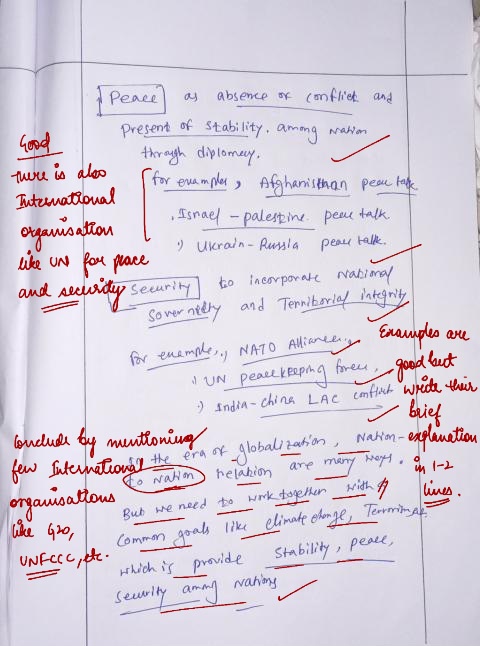 Peace as absence of conflict and
Present of stability. among nation
through diplomacy.
Good
there is also
International
organisation
like UN for peace
and security
for examples, Afghanisthan peace talk
. Israel - palestine peace talk
.) Ukrain - Russia peace talk.
Security to incorporate national
Soverneity and Terriborial integrity
for example, .) NATO Alliance,
.) UN peacekeeping forces,
.) India-china LAC conflict
Examples are
good but
write their
brief
explanation
in 1-2
lines.
In the era of globalization, Nation-
to nation relation are many ways.
But we need to work together with
Common goals like climate change, Terrorism
which is provide stability, peace,
security among nations
Conclude by mentioning
few International
organisations
like G20,
UNFCCC, etc.